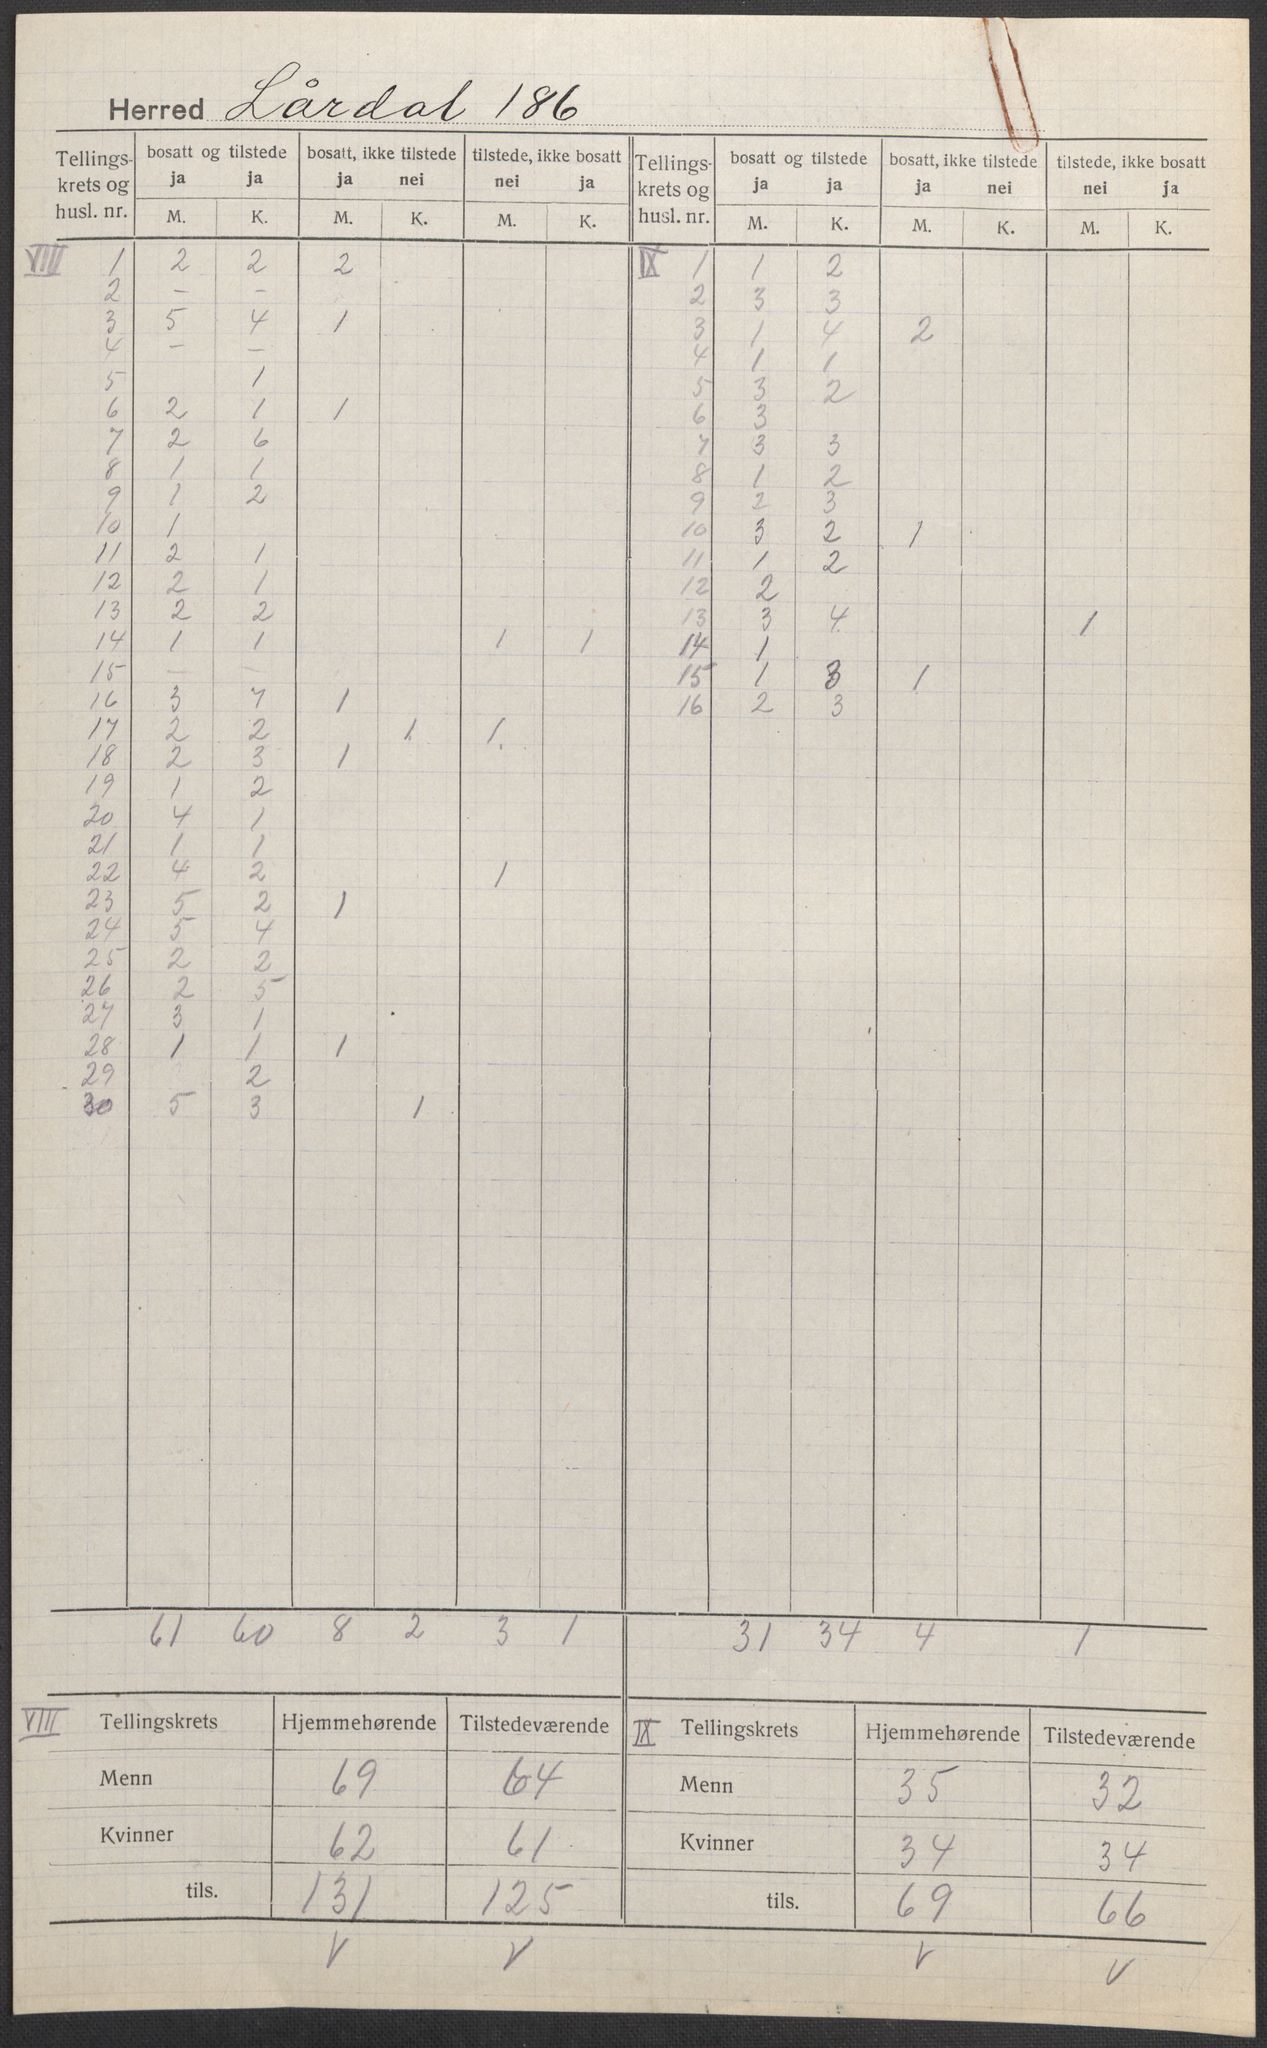 Herred Lårdal 186
Tellings-krets og husl. nr. | bosatt og tilstede ja M. | ja K. | bosatt, ikke tilstede ja M. | nei K. | tilstede, ikke bosatt nei M. | ja K. | Tellings-krets og husl. nr. | bosatt og tilstede ja M. | ja K. | bosatt, ikke tilstede ja M. | nei K. | tilstede, ikke bosatt nei M. | ja K.
VIII 1 | 2 | 2 | 2 | | | | IX 1 | 1 | 2 | | | |
2 | – | – | | | | | 2 | 3 | 3 | | | |
3 | 5 | 4 | 1 | | | | 3 | 1 | 4 | 2 | | |
4 | – | – | | | | | 4 | 1 | 1 | | | |
5 | | 1 | | | | | 5 | 3 | 2 | | | |
6 | 2 | 1 | 1 | | | | 6 | 3 | | | | |
7 | 2 | 6 | | | | | 7 | 3 | 3 | | | |
8 | 1 | 1 | | | | | 8 | 1 | 2 | | | |
9 | 1 | 2 | | | | | 9 | 2 | 3 | | | |
10 | 1 | | | | | | 10 | 3 | 2 | 1 | | |
11 | 2 | 1 | | | | | 11 | 1 | 2 | | | |
12 | 2 | 1 | | | | | 12 | 2 | | | | |
13 | 2 | 2 | | | | | 13 | 3 | 4 | | | 1 |
14 | 1 | 1 | | | 1 | 1 | 14 | 1 | | | | |
15 | – | – | | | | | 15 | 1 | 3 | 1 | | |
16 | 3 | 7 | 1 | | | | 16 | 2 | 3 | | | |
17 | 2 | 2 | | 1 | 1 |
18 | 2 | 3 | 1 | | |
19 | 1 | 2 | | | |
20 | 4 | 1 | | | |
21 | 1 | 1 | | | |
22 | 4 | 2 | | | 1 |
23 | 5 | 2 | 1 | | |
24 | 5 | 4 | | | |
25 | 2 | 2 | | | |
26 | 2 | 5 | | | |
27 | 3 | 1 | | | |
28 | 1 | 1 | 1 | | |
29 | | 2 | | | |
30 | 5 | 3 | | 1 | |
61 | 60 | 8 | 2 | 3 | 1 | | 31 | 34 | 4 | | 1 |
VIII Tellingskrets | Hjemmehørende | Tilstedeværende | IX Tellingskrets | Hjemmehørende | Tilstedeværende
Menn | 69 | 64 | Menn | 35 | 32
Kvinner | 62 | 61 | Kvinner | 34 | 34
tils. | 131 | 125 | tils. | 69 | 66
V | V | V | V